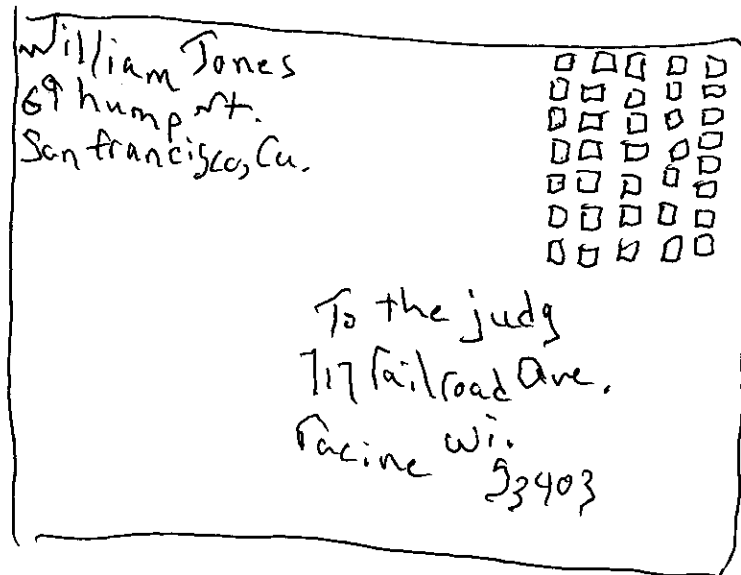 William Jones
69 hump st.
San francisco, Ca.
To the judg
717 railroad ave.
racine wi.
53403